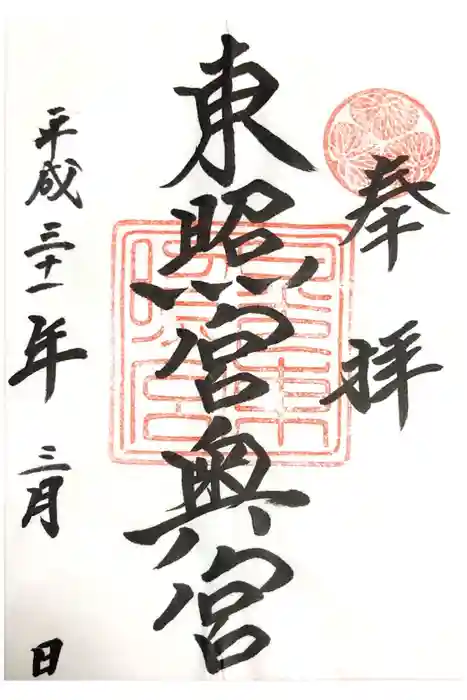 奉拝
東照宮奥宮
平成三十一年 三月 日